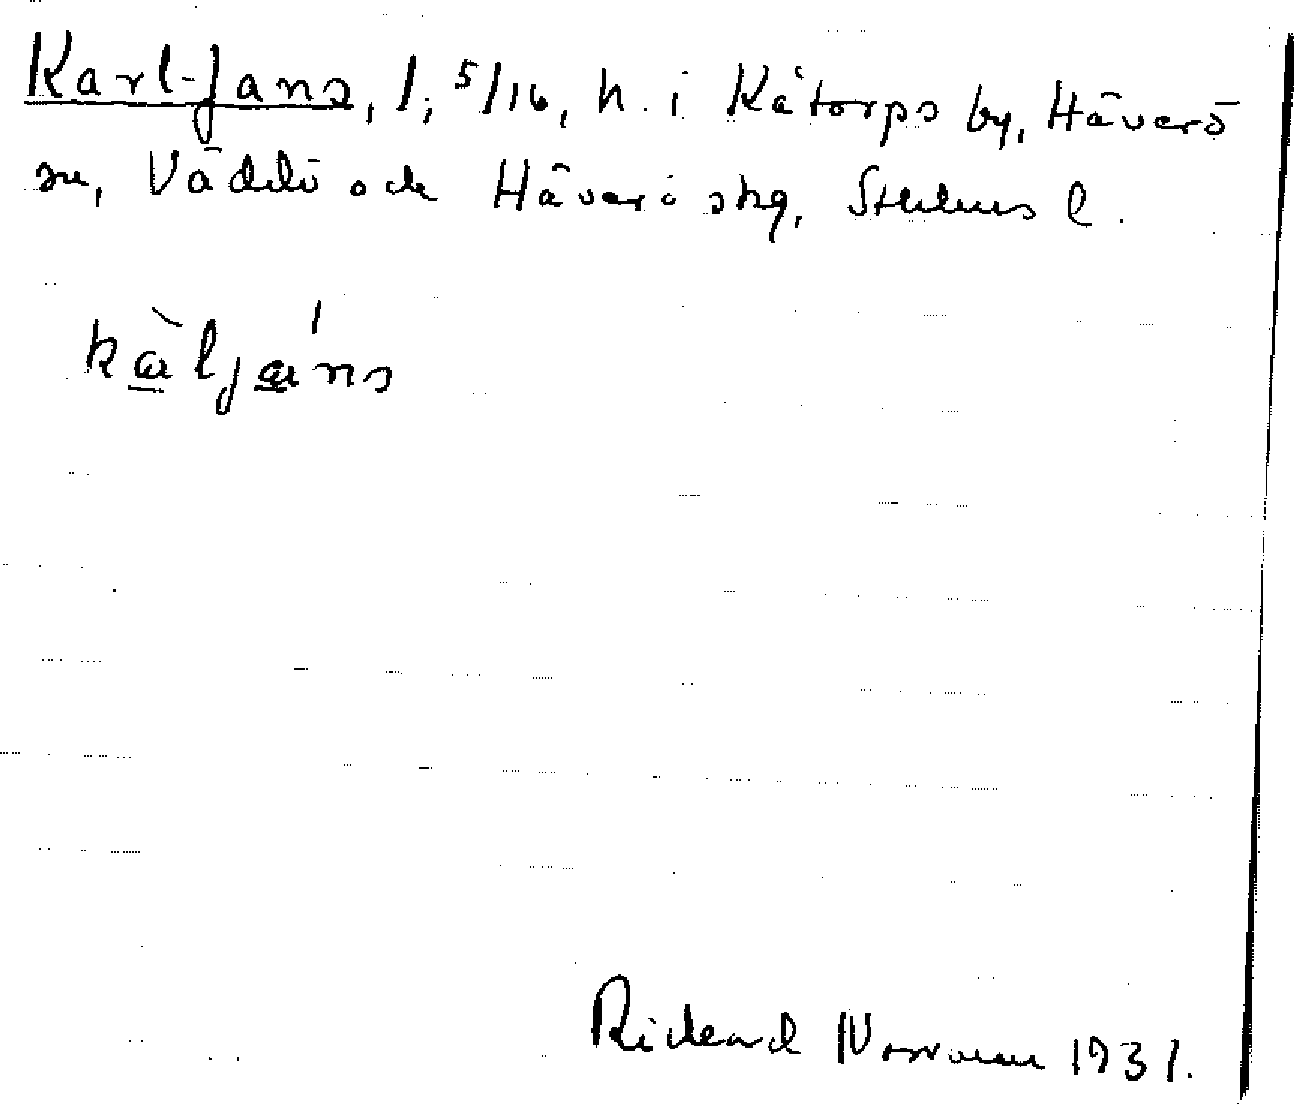 Karl-Jans, 1, 5/16, h. i Kåtorps by, Häverö
sn, Väddö och Häverö skg, Sthlms l.
kàljáns
Rickard Norrman 1931.